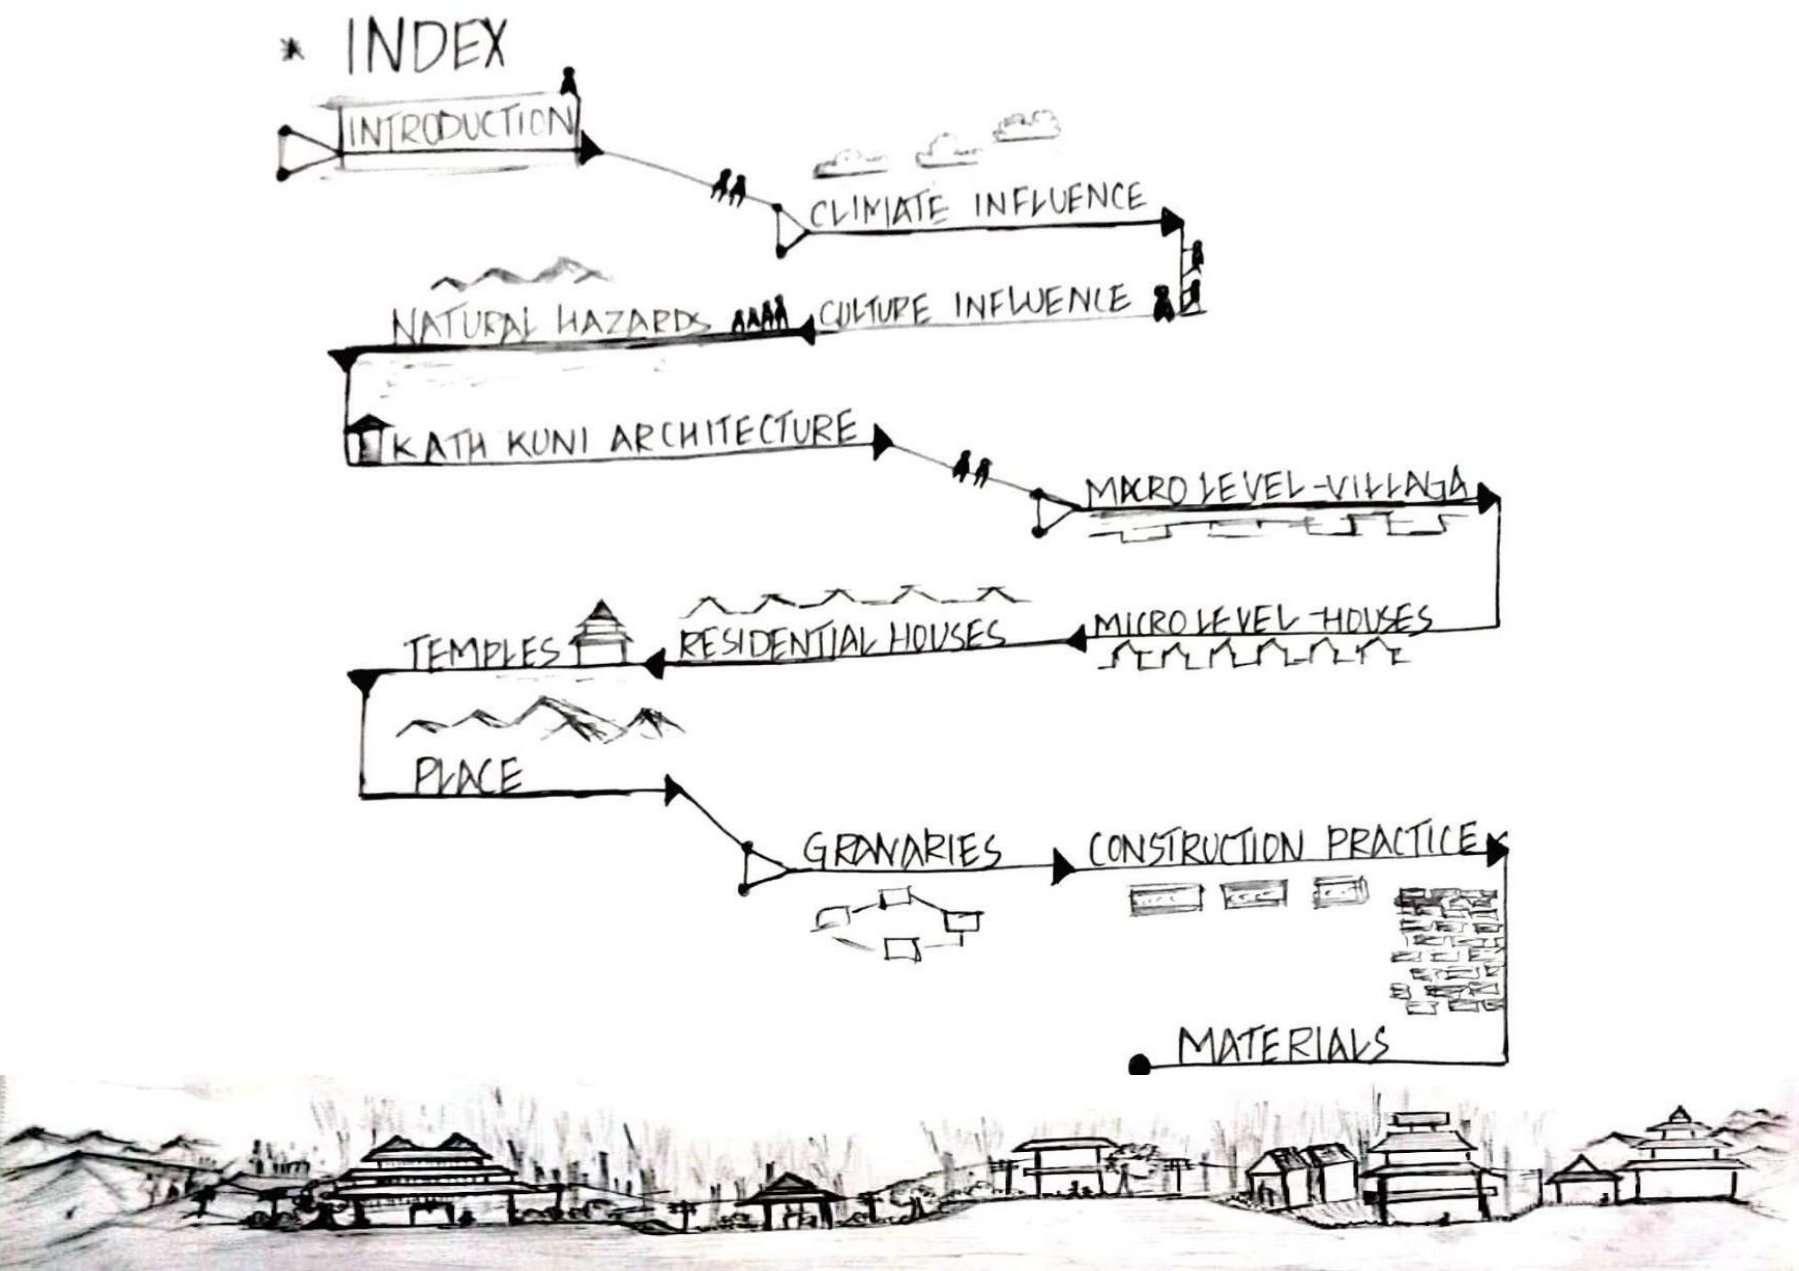 * INDEX
INTRODUCTION
CLIMATE INFLUENCE
NATURAL HAZARDS CULTURE INFLUENCE
KATH KUNI ARCHITECTURE
MACRO LEVEL-VILLAGA
TEMPLES RESIDENTIAL HOUSES MICRO LEVEL-HOUSES
PLACE
GRANARIES CONSTRUCTION PRACTICE
MATERIALS